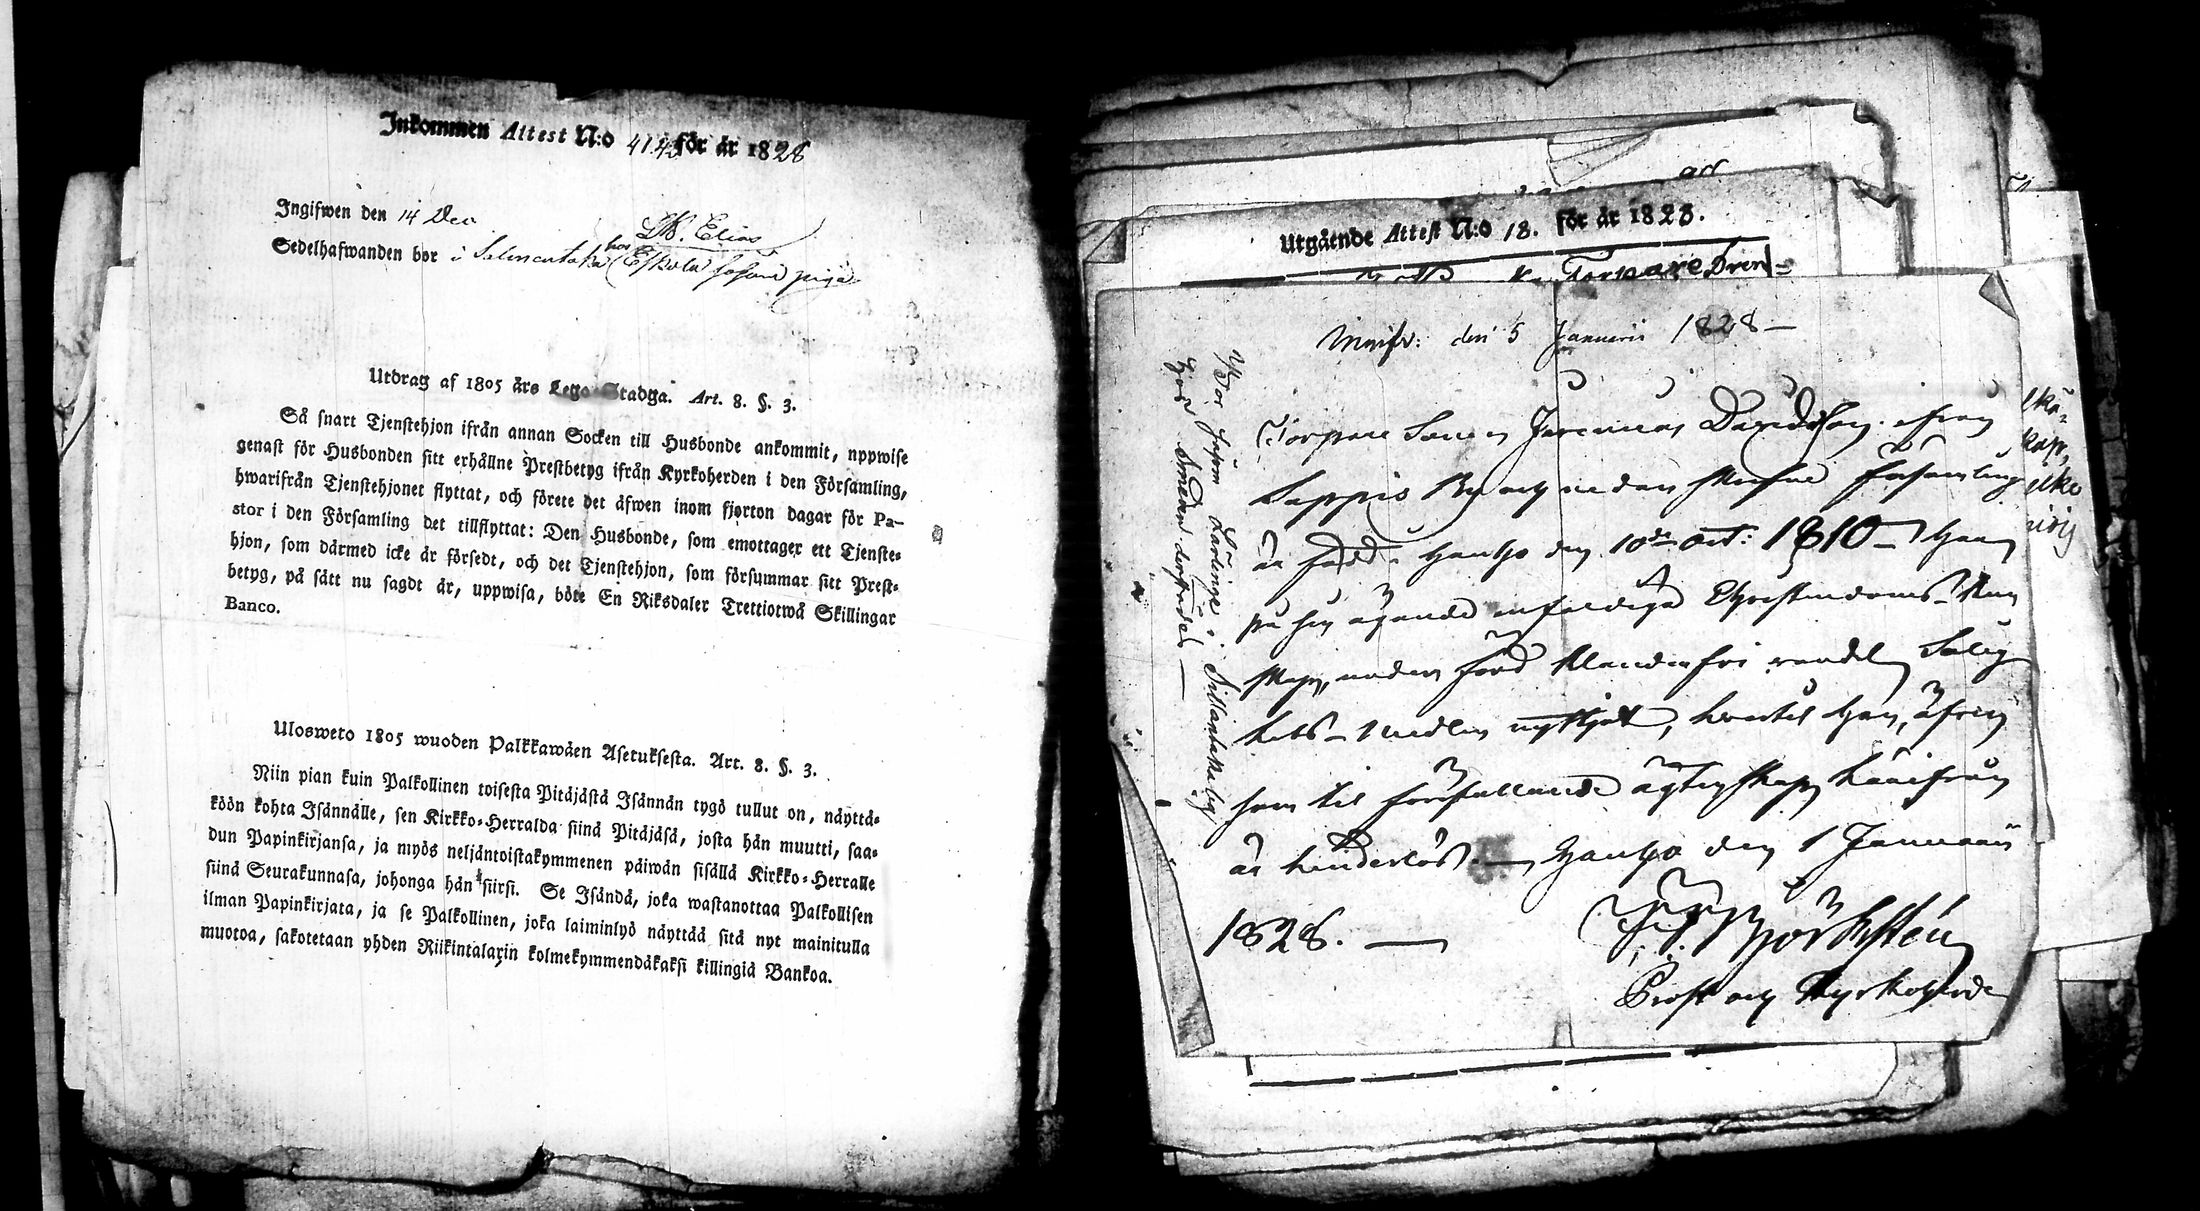 Inkommen Attest N:o 41.43 för år 1828
Ingifwen den 14 Dec
Sedelhafwanden bor i
hos
Elias
Utdrag af 1805 års Lego-Stadga. Art. 8. §. 3.
Så snart Tjenstehjon ifrån annan Socken till Husbonde ankommit, uppwise
genast för Husbonden sitt erhållne Prestbetyg ifrån Kyrkoherden i den Församling,
hwarifrån Tjenstehjonet flyttat, och förete det äfwen inom fjorton dagar för Pa-
stor i den Församling det tillflyttat: Den Husbonde, som emottager ett Tjenste-
hjon, som därmed icke är försedt, och det Tjenstehjon, som försummar sitt Prest-
betyg, på sätt nu sagdt är, uppwisa, böte En Riksdaler Trettiotwå Skillingar
Banco.
Ulosweto 1805 wuoden Palkkawäen Asetuksesta. Art. 8. §. 3.
Niin pian kuin Palkollinen toisesta Pitäjästä Isännän tygö tullut on, näyttä-
köön kohta Isännälle, sen Kirkko-Herralda siinä Pitäjäsä, josta hän muutti, saa-
dun Papinkirjansa, ja myös neljäntoistakymmenen päiwän sisällä Kirkko-Herralle
siinä Seurakunnasa, johonga hän siirsi. Se Isändä, joka wastanottaa Palkollisen
ilman Papinkirjata, ja se Palkollinen, joka laiminlyö näyttää sitä nyt mainitulla
muotoa, sakotetaan yhden Riikintalarin kolmekymmendäkaksi killingiä Bankoa.
Utgående Attest N:o 18. för år 1828.
den 5 Januarii 1828
Torpare Sonen Jeremias Davidsson ifrån
Sappis By och nedan skrefne församling
är född i Hauho den 10de Oct: 1810 Han
på sin ägande enfaldiga Christendoms Kun
skap, under förd klanderfri vandel Salig
hets-medlen nyttjat, hvartil han, äfven
som til förefallande ägtenskap härifrån
är hinderlös. Hauho den 1 Januarii
1828.
Björkstén
Prost och Kyrkoherde